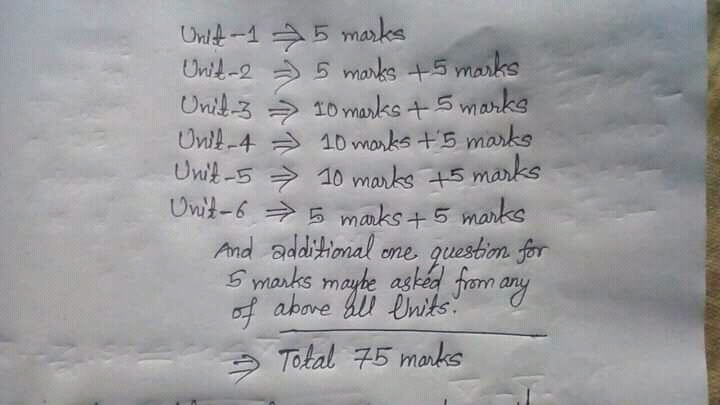 Unit-1 ⇒ 5 marks
Unit-2 ⇒ 5 marks + 5 marks
Unit-3 ⇒ 10 marks + 5 marks
Unit-4 ⇒ 10 marks + 5 marks
Unit-5 ⇒ 10 marks + 5 marks
Unit-6 ⇒ 5 marks + 5 marks
And additional one question for
5 marks maybe asked from any
of above all Units.
⇒ Total 75 marks